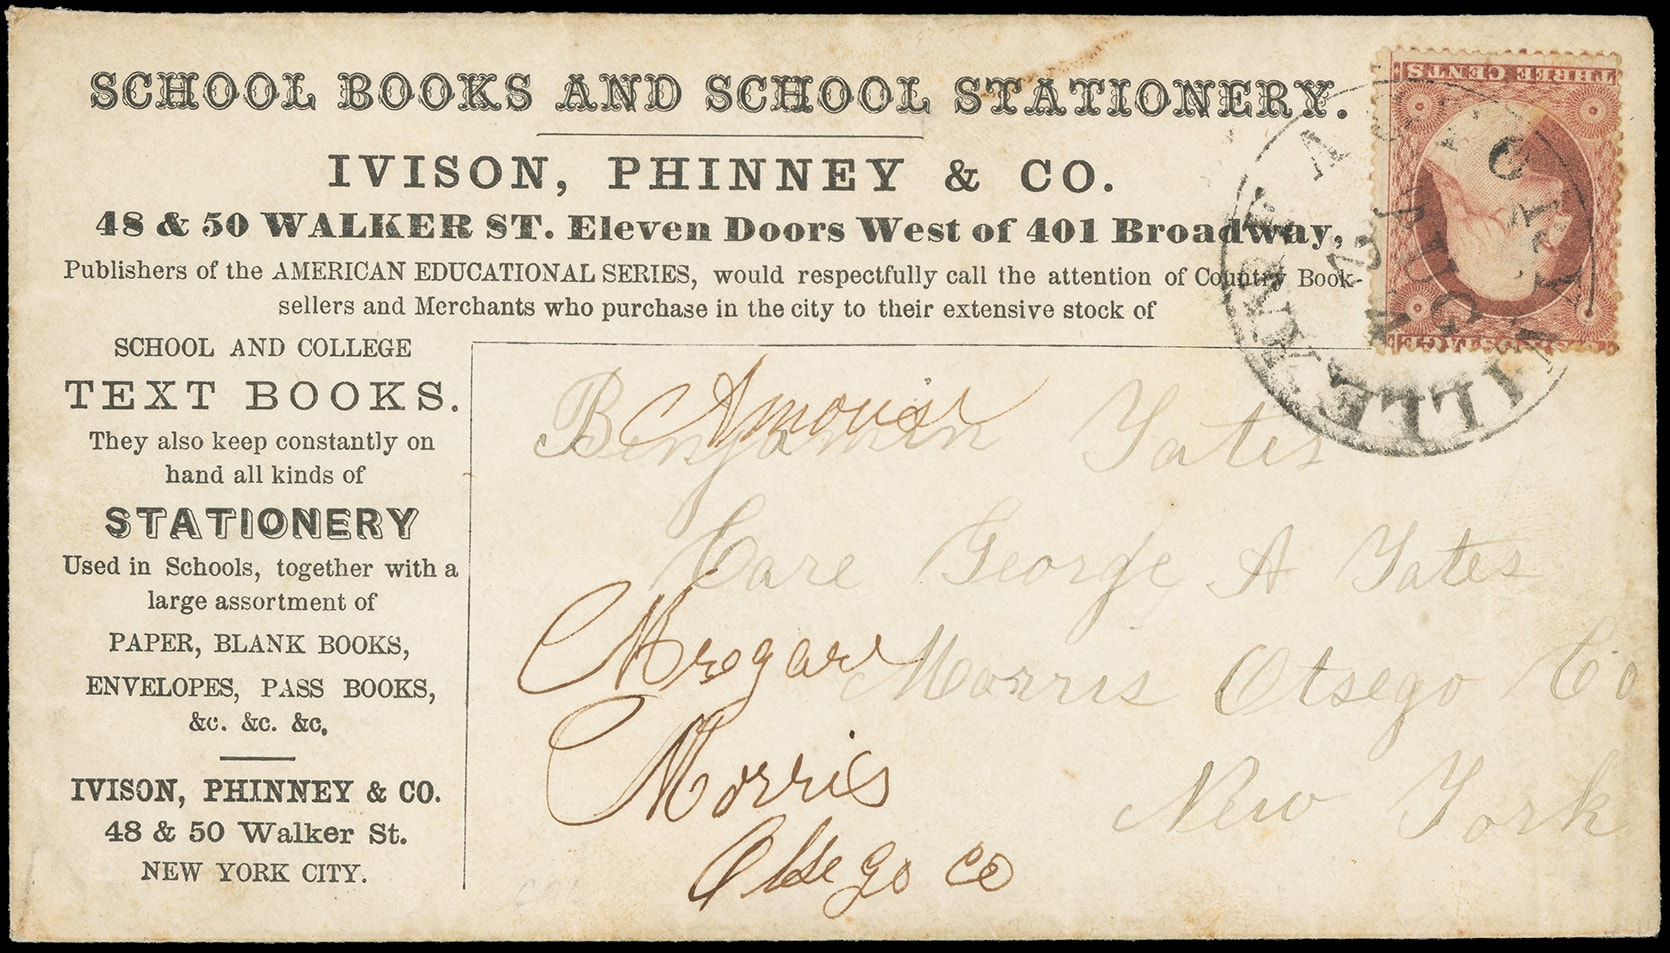 SCHOOL BOOKS AND SCHOOL STATIONERY.
IVISON, PHINNEY & CO.
48 & 50 WALKER ST. Eleven Doors West of 401 Broadway,
Publishers of the AMERICAN EDUCATIONAL SERIES, would respectfully call the attention of Country Book-
sellers and Merchants who purchase in the city to their extensive stock of
SCHOOL AND COLLEGE
TEXT BOOKS.
They also keep constantly on
hand all kinds of
STATIONERY
Used in Schools, together with a
large assortment of
PAPER, BLANK BOOKS,
ENVELOPES, PASS BOOKS,
&c. &c. &c.
IVISON, PHINNEY & CO.
48 & 50 Walker St.
NEW YORK CITY.
THREE CENTS
Benjamin Yates
Care George A Yates
Morris Otsego Co
New York
Morris
Otsego co